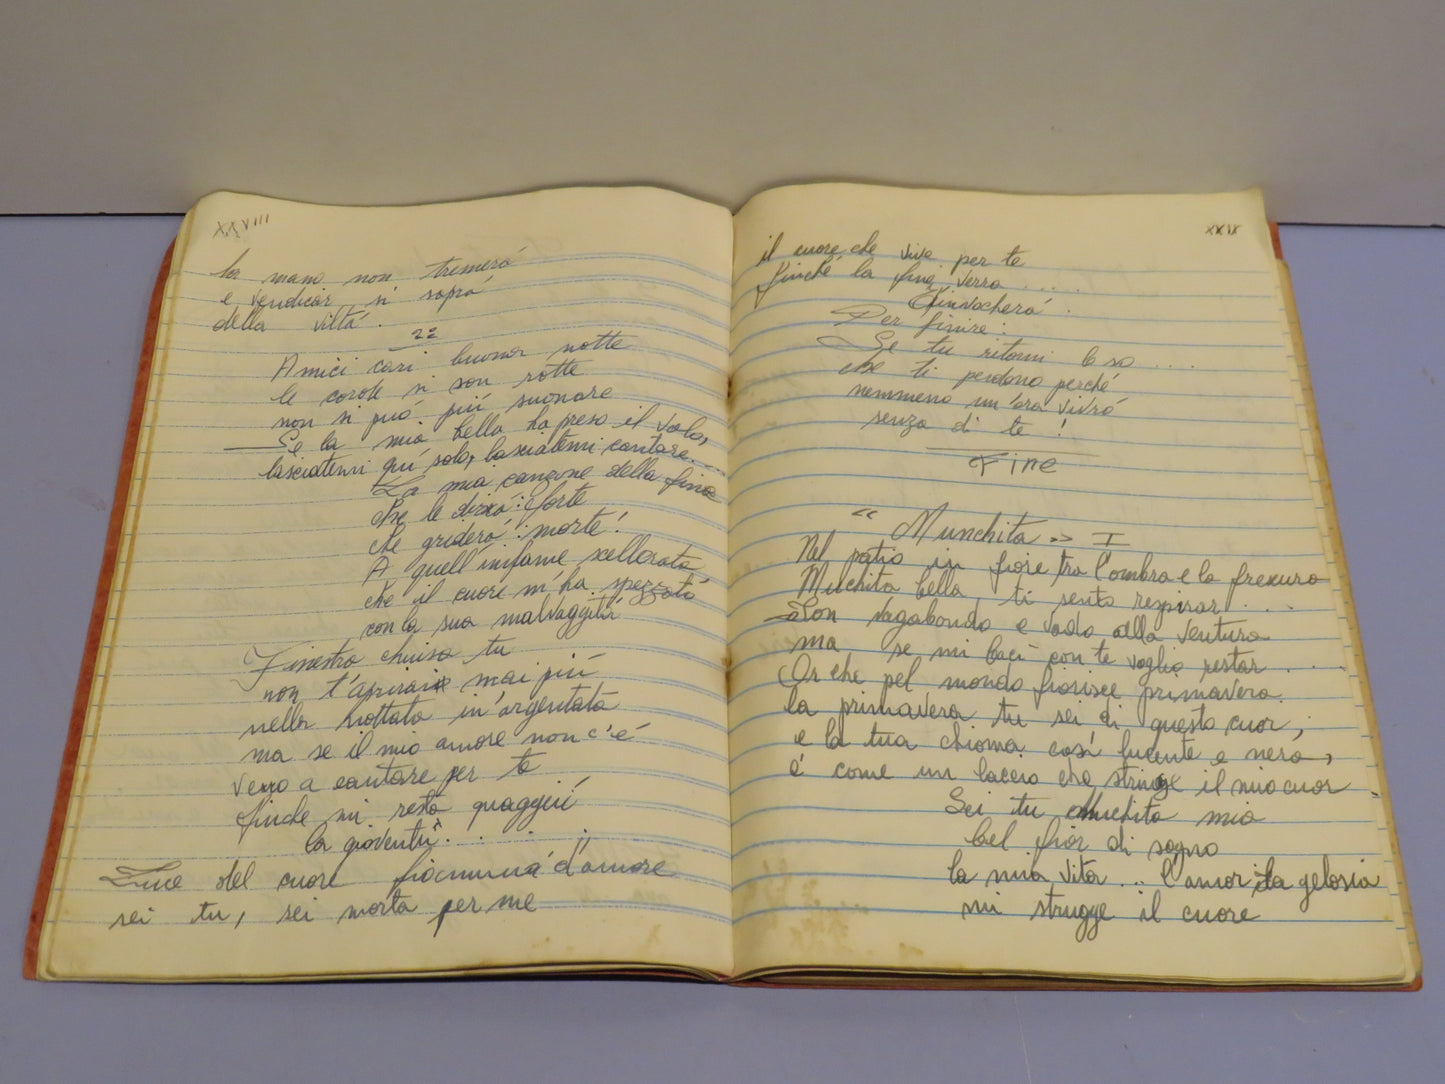 XXVIII
la mano non tremerá
e vendicar si saprá
della viltá.
2ª
Amici cari buona notte
le corde si son rotte
non si puó piú suonare
Se la mia bella ha preso il volo,
lasciatemi quí solo, lasciatemi cantare...
La mia canzone della fine
che le dirá: forte
che griderá: morte!
A quell'infame scellerata
che il cuore m'ha spezzató
con la sua malvaggitá
Finestra chiusa tu
non t'aprirai mai piú
nella nottata in'argentata
ma se il mio amore non c'é
verro a cantare per te
finche mi resta quaggiú
la gioventú...
Luce del cuore fiamma d'amore
sei tu, sei morta per me
XXIX
il cuore che vive per te
finché la fine verra.....
t'invocherá.
Per finire:
Se tu ritorni lo so....
che ti perdono perché
nemmeno un'ora vivró
senza di te!
Fine
"Munchita" I
Nel patio in fiore tra l'ombra e la frexura
Muchita bella ti sento respirar....
Son vagabondo e vado alla ventura
ma se mi baci con te voglio restar....
Or che pel mondo fiorisce primavera
la primavera tu sei di questo cuor,
e la tua chioma cosí lucente e nera,
é come un laccio che stringe il mio cuor
Sei tu Muchita mia
bel fior di sogno
la mia vita... l'amor la gelosia
mi strugge il cuore